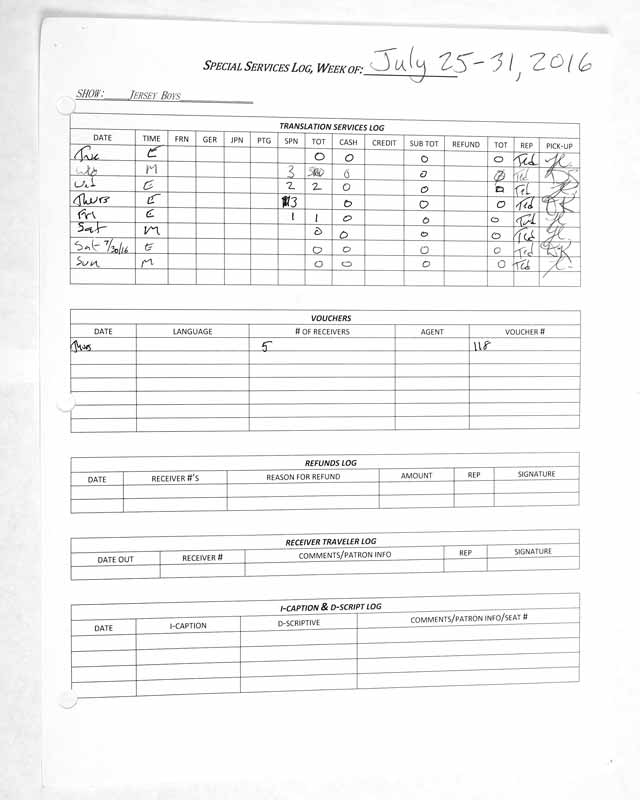 SPECIAL SERVICES LOG, WEEK OF: July 25-31, 2016
SHOW: JERSEY BOYS
TRANSLATION SERVICES LOG
DATE TIME FRN GER JPN PTG SPN TOT CASH CREDIT SUB TOT REFUND TOT REP PICK-UP
Tue E 0 0 0 0 Ted
Wed M 3 0 0 0 Ted
Wed E 2 2 0 0 0 Ted
Thurs E 3 0 0 0 Ted
Fri E 1 1 0 0 0 Ted
Sat M 0 0 0 0 Ted
Sat 7/30/16 E 0 0 0 0 Ted
Sun M 0 0 0 0 Ted
VOUCHERS
DATE LANGUAGE # OF RECEIVERS AGENT VOUCHER #
Thurs 5 118
REFUNDS LOG
DATE RECEIVER #'S REASON FOR REFUND AMOUNT REP SIGNATURE
RECEIVER TRAVELER LOG
DATE OUT RECEIVER # COMMENTS/PATRON INFO REP SIGNATURE
I-CAPTION & D-SCRIPT LOG
DATE I-CAPTION D-SCRIPTIVE COMMENTS/PATRON INFO/SEAT #